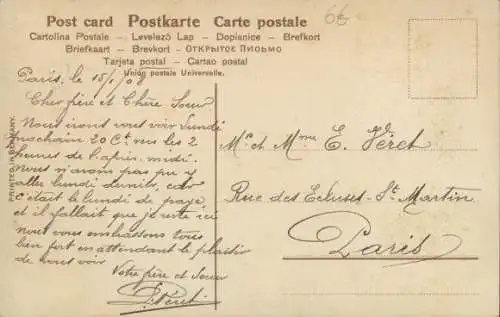 Post card Postkarte Carte postale
Cartolina Postale – Levelező Lap – Dopisnice – Brefkort
Briefkaart – Brevkort – ОТКРЫТОЕ ПИСЬМО
Tarjeta postal – Cartao postal
Union postale Universelle.
66
PRINTED IN GERMANY.
Paris. le 15/1/08
Cher frère et Chère Sœur
Nous irons vous voir Lundi
prochain 20 Ct vers les 2
heures de l'après-midi.
Nous n'avons pas pu y
aller lundi dernier, car
c'était le lundi de paye,
et il fallait que je reste ici
nous vous embrassons tous
bien fort en attendant le plaisir
de vous voir
Votre frère et Sœur
Mr et Mme E. Véret
Rue des Ecluses-St Martin
Paris